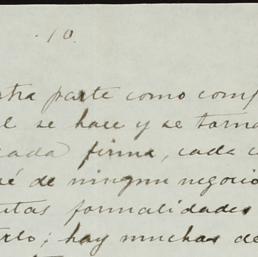 10.
tra parte como comp
l se hace y se torna
cada firma, cada c
é de ningun negocio
tas formalidades
rlo; hay muchas de